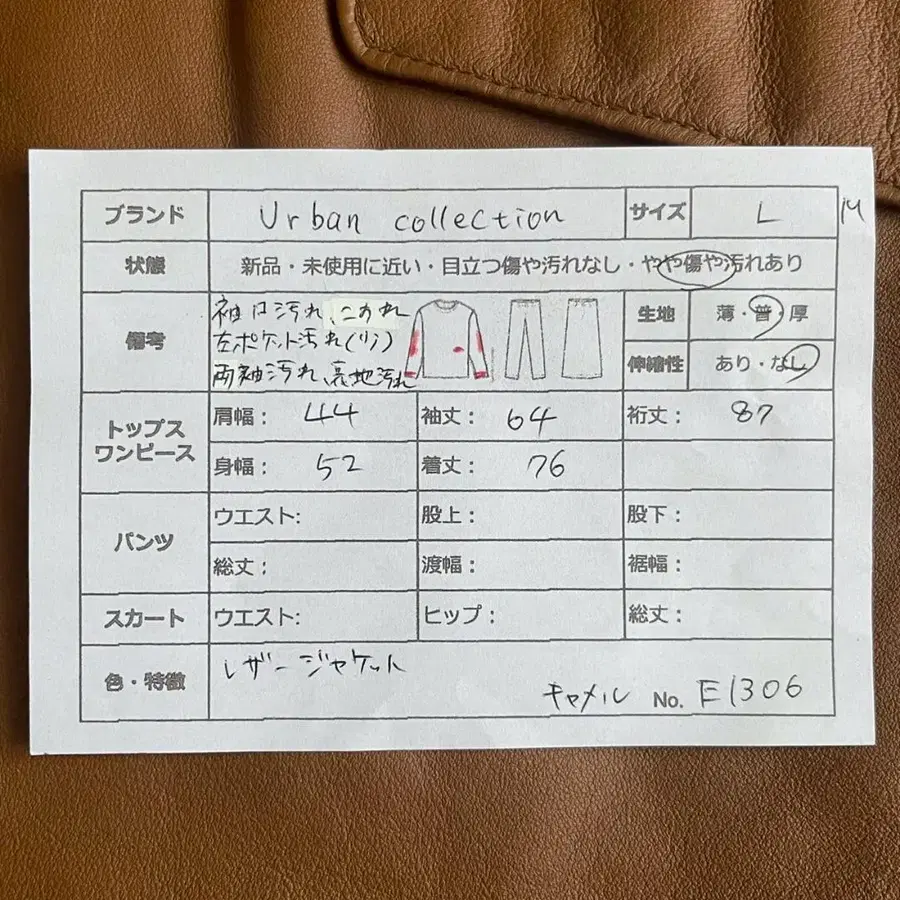 ブランド Urban collection サイズ L
状態 新品・未使用に近い・目立つ傷や汚れなし・やや傷や汚れあり
備考 袖口汚れ、こすれ 生地 薄・普・厚
左ポケット汚れ(小)
両袖汚れ、裏地汚れ 伸縮性 あり・なし
トップス
ワンピース
肩幅: 44 袖丈: 64 裄丈: 87
身幅: 52 着丈: 76
パンツ ウエスト: 股上: 股下:
総丈: 渡幅: 裾幅:
スカート ウエスト: ヒップ: 総丈:
色・特徴 レザージャケット
キャメル No. E1306